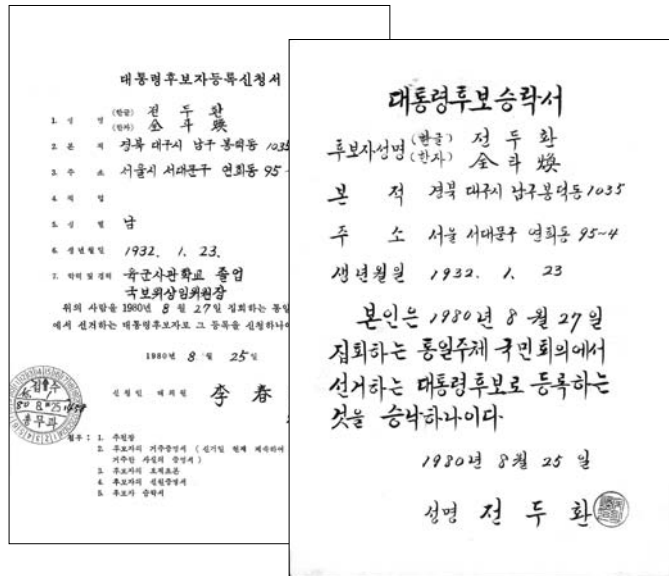 대통령후보자등록신청서
1. 성 명 (한글) 전 두 환
(한자) 全 斗 煥
2. 본 적 경북 대구시 남구 봉덕동 1035
3. 주 소 서울시 서대문구 연희동 95-
4. 직 업
5. 성 별 남
6. 생년월일 1932. 1. 23.
7. 학력 및 경력 육군사관학교 졸업
국보위상임위원장
위의 사람을 1980년 8월 27일 집회하는 통일
에서 선거하는 대통령후보자로 그 등록을 신청하나이
1980년 8월 25일
신청인 대의원 李 春
접수
80 8. 25
총무과
첨부 : 1. 추천장
2. 후보자의 거주증명서 ( 선거일 현재 계속하여
거주한 사실의 증명서 )
3. 후보자의 호적초본
4. 후보자의 신원증명서
5. 후보자 승락서
대통령후보승락서
후보자성명 (한글) 전 두 환
(한자) 全 斗 煥
본 적 경북 대구시 남구봉덕동 1035
주 소 서울 서대문구 연희동 95~4
생년월일 1932. 1. 23
본인은 1980년 8월 27일
집회하는 통일주체 국민회의에서
선거하는 대통령후보로 등록하는
것을 승낙하나이다.
1980년 8월 25일
성명 전 두 환